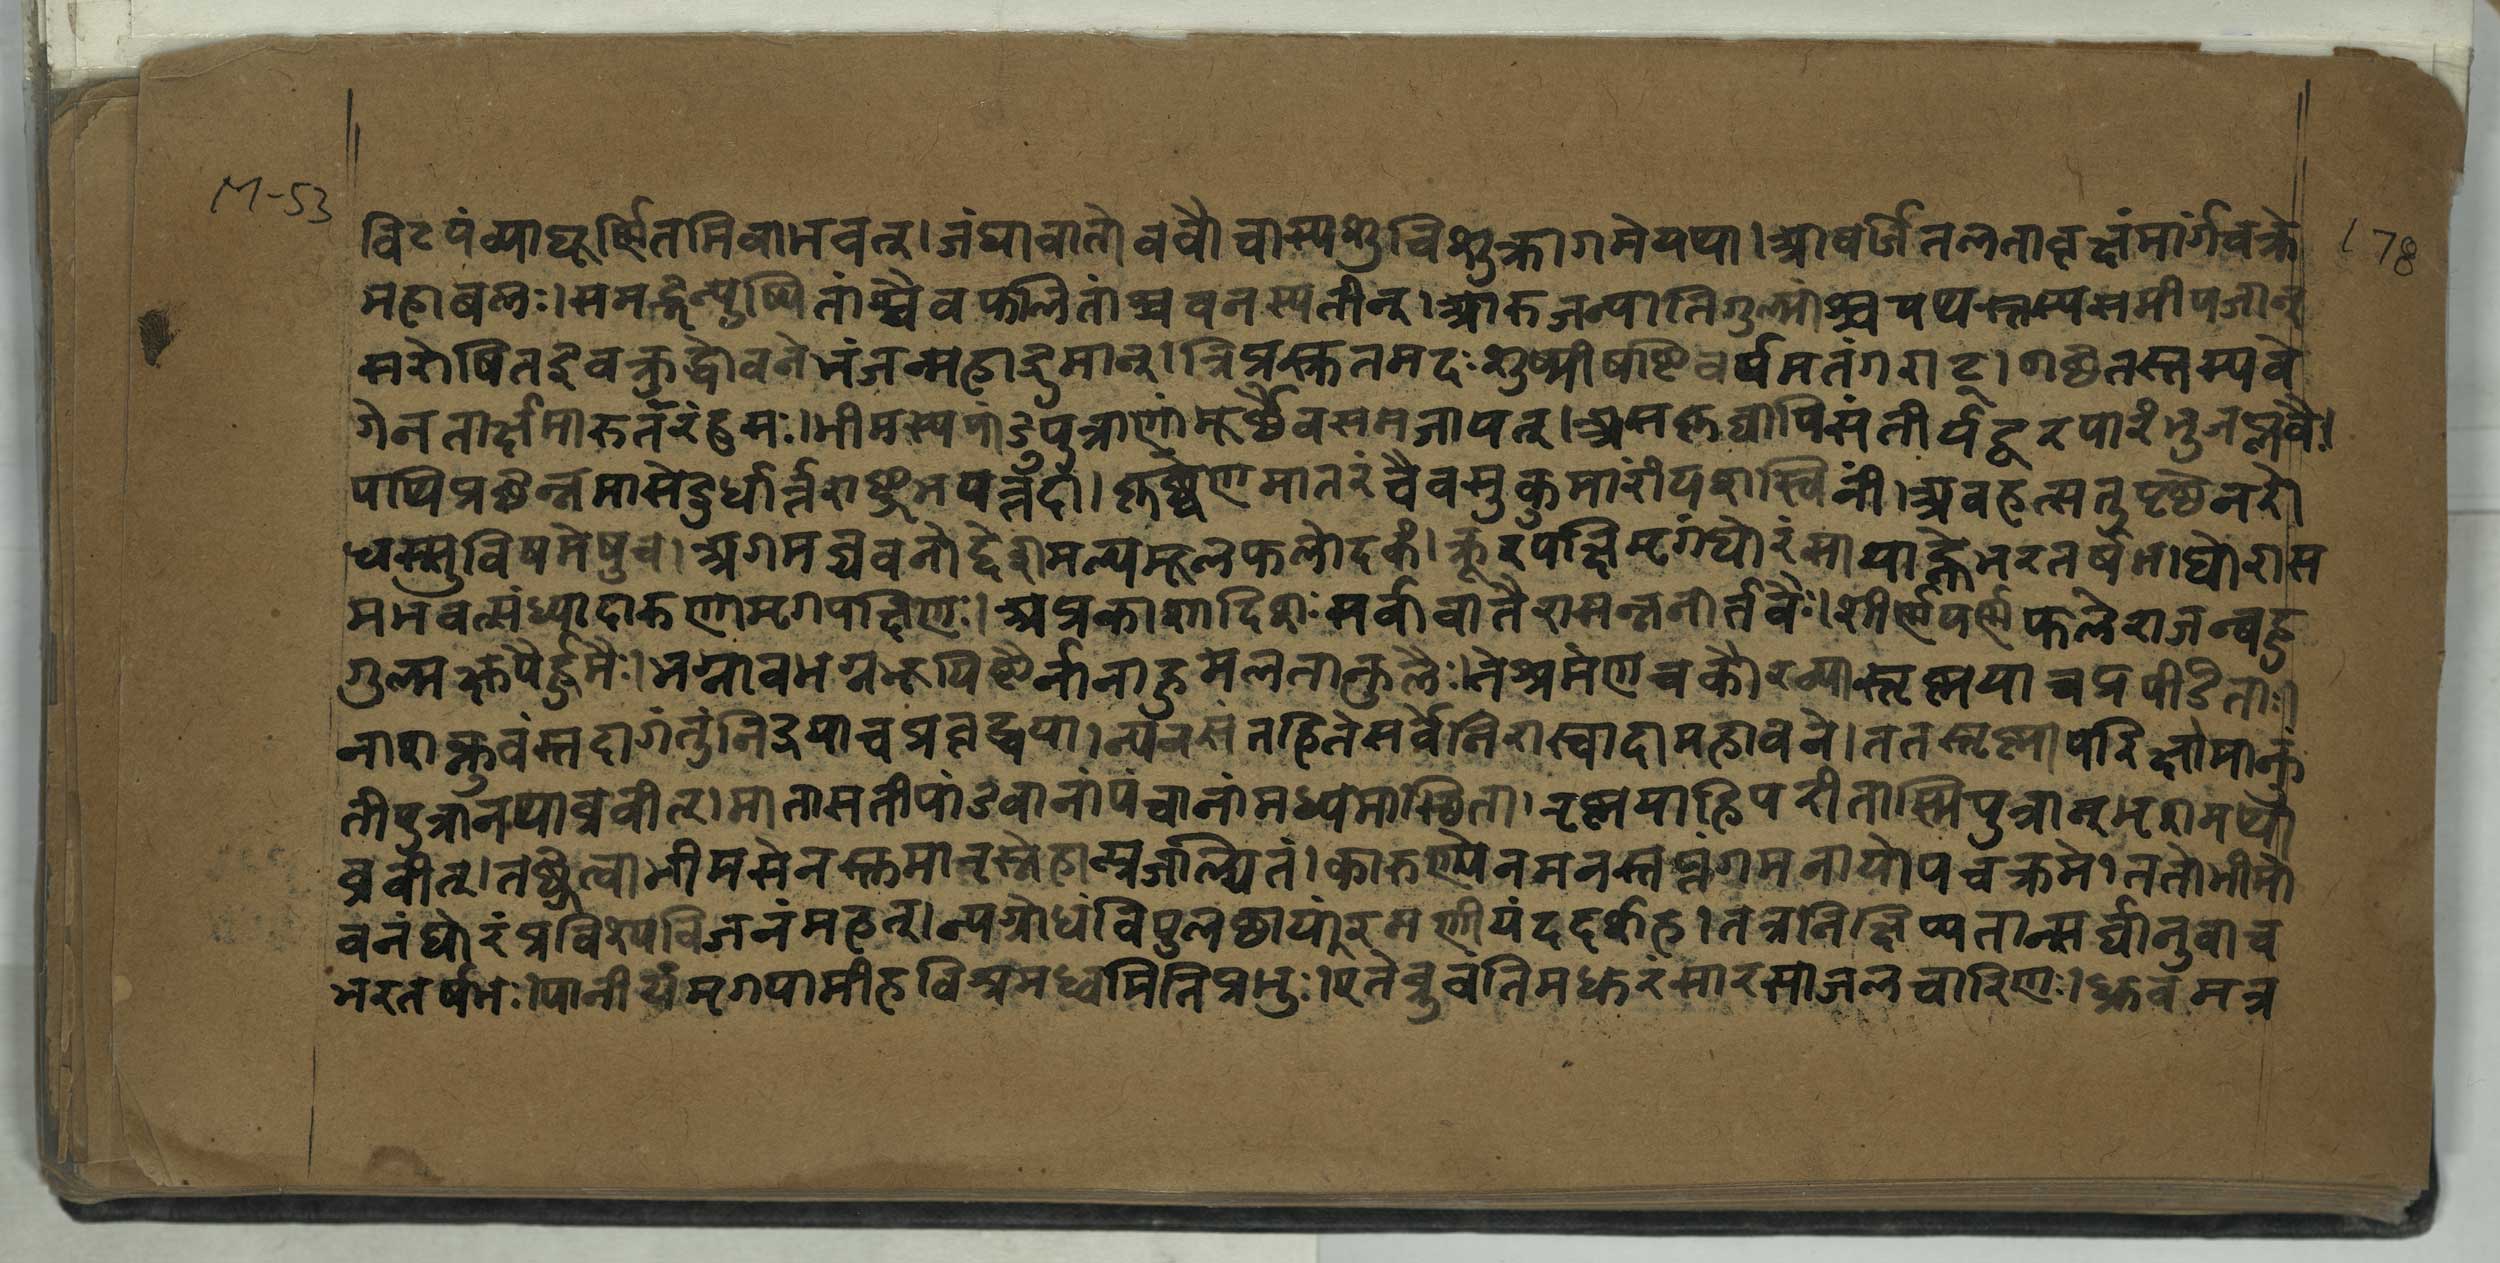 M-53
178
विटपंव्याघूर्णितमिवाभवत्। जंघावातो ववौ चास्यशुचिशुक्रागमेयथा। आवर्जितलतावृक्षंमार्गंचक्रे
महाबलः। समृद्गन्पुष्पितांश्चैव फलितांश्च वनस्पतीन्। आरुजन्याति गुल्मांश्च पथस्तस्यसमीपजान्
सरोषितइवक्रुद्धोवनेभंजन्महाद्रुमान्। त्रिप्रस्रुतमदः शुष्मीषष्टिवर्षमतंगराट्। गच्छतस्तस्यवे
गेनतार्क्षमारुतरंहसः। भीमस्यपांडुपुत्राणांमूर्छेवसमजायत्। असकृच्चापिसंतीर्यदूरपारंभुजप्लवैः।
पथिप्रच्छन्नमासेदुर्धार्तराष्ट्रभयत्तदा। कृच्छ्रेणमातरंचैवसुकुमारींयशस्विनीं। अवहत्सतुपृष्ठेनरो
धस्सुविषमेषुच। अगमच्चवनोद्देशमल्पमूलफलोदकं। क्रूरपक्षिमृगंघोरंसायाह्नेभरतर्षभ। घोरास
मभवत्संध्यादारुणामृगपक्षिणः। अप्रकाशादिशःसर्वावातैरासन्ननार्तवैः। शीर्णपर्णफलेराजन्बहु
गुल्मक्षुपैर्द्रुमैः। भग्नावभग्नभूयिष्ठैर्नानाद्रुमलताकुलैः। तेश्रमेणचकौरव्यास्तृष्णयाचप्रपीडिताः।
नाशक्नुवंस्तदागंतुंनिद्रयाचप्रवृद्धया। न्यविसंतहितेसर्वेनिरास्वादामहावने। ततस्तृष्णापरिक्षामाकुं
तीपुत्रानथाब्रवीत्। मातासतीपांडवानांपंचानांमध्यमास्थिता। तृष्णयाहिपरीतास्मिपुत्रान्भृशमथा
ब्रवीत्। तच्छ्रुत्वाभीमसेनस्तुमातृस्नेहात्प्रजल्पितं। कारुण्येनमनस्तप्तंगमनायोपचक्रमे। ततोभीमो
वनंघोरंप्रविश्यविजनंमहत्। न्यग्रोधंविपुलछायांरमणीयंददर्शह। तत्रनिक्षिप्यतान्सर्वानुवाच
भरतर्षभः। पानीयंमृगयामीहविश्रमध्वमितिप्रभुः। एतेब्रुवंतिमधुरंसारसाजलचारिणः। ध्रुवमत्र